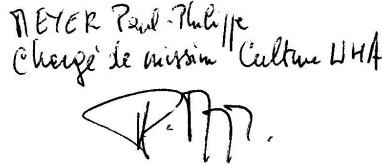 MEYER Paul-Philippe
Chargé de mission Culture WHA